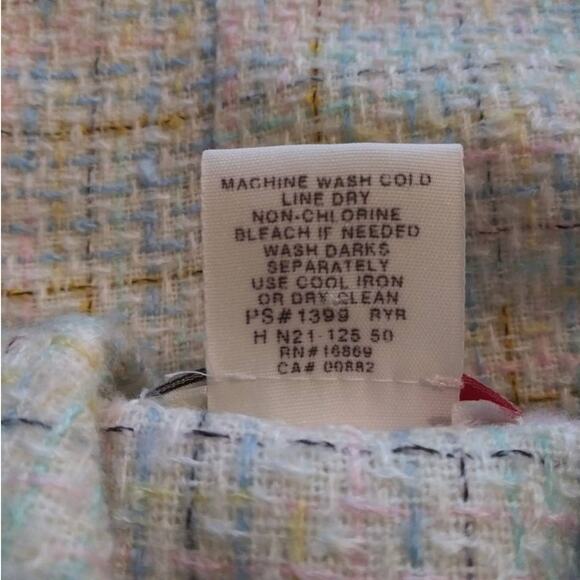 MACHINE WASH COLD
LINE DRY
NON-CHLORINE
BLEACH IF NEEDED
WASH DARKS
SEPARATELY
USE COOL IRON
OR DRY CLEAN
PS# 1399 RYR
H N21-125 50
RN# 16869
CA# 00882